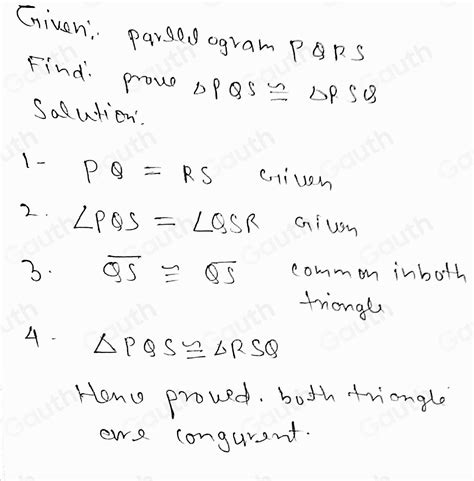 Given:. parallelogram PQRS
Find: prove △PQS ≅ △RSQ
Solution:
1- PQ = RS Given
2. ∠PQS = ∠QSR Given
3. QS ≅ QS common in both
triangle
4. △PQS ≅ △RSQ
Hence proved. both triangle
are congurent.